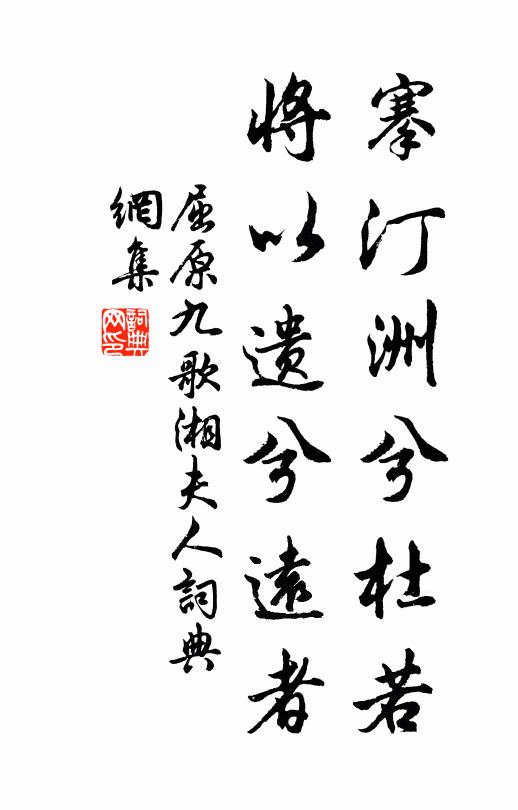 搴汀洲兮杜若
將以遺兮遠者
屈原九歌湘夫人詞典
網集
詞典
网印